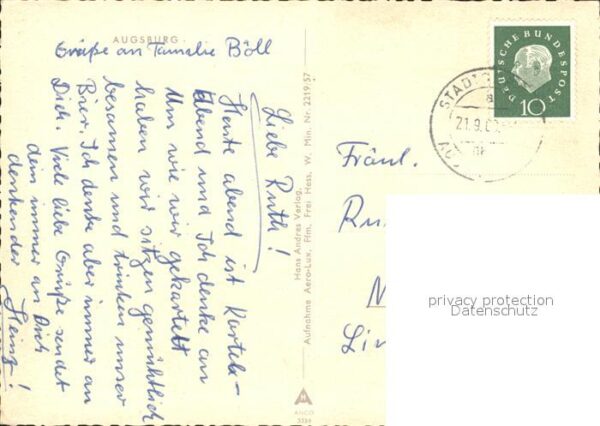 AUGSBURG
Grüße an Familie Böll
Liebe Ruth!
Heute abend ist Kartel-
abend und Ich denke an
wie wir gekartelt
haben wir sitzen gemühtlich
besamen und trinken unser
Bier. Ich denke aber immer an
Dich. Viele liebe Grüße sendet
dein immer an Dich
denkender
Heinz!
Hans Andres Verlag,
Aufnahme Aero-Lux, Ffm, Frei Hess. W. Min. Nr. 2219/57
ANCO
Fräul.
Ru
N
Lin
DEUTSCHE BUNDESPOST
10
STADT
21.9.6
privacy protection
Datenschutz